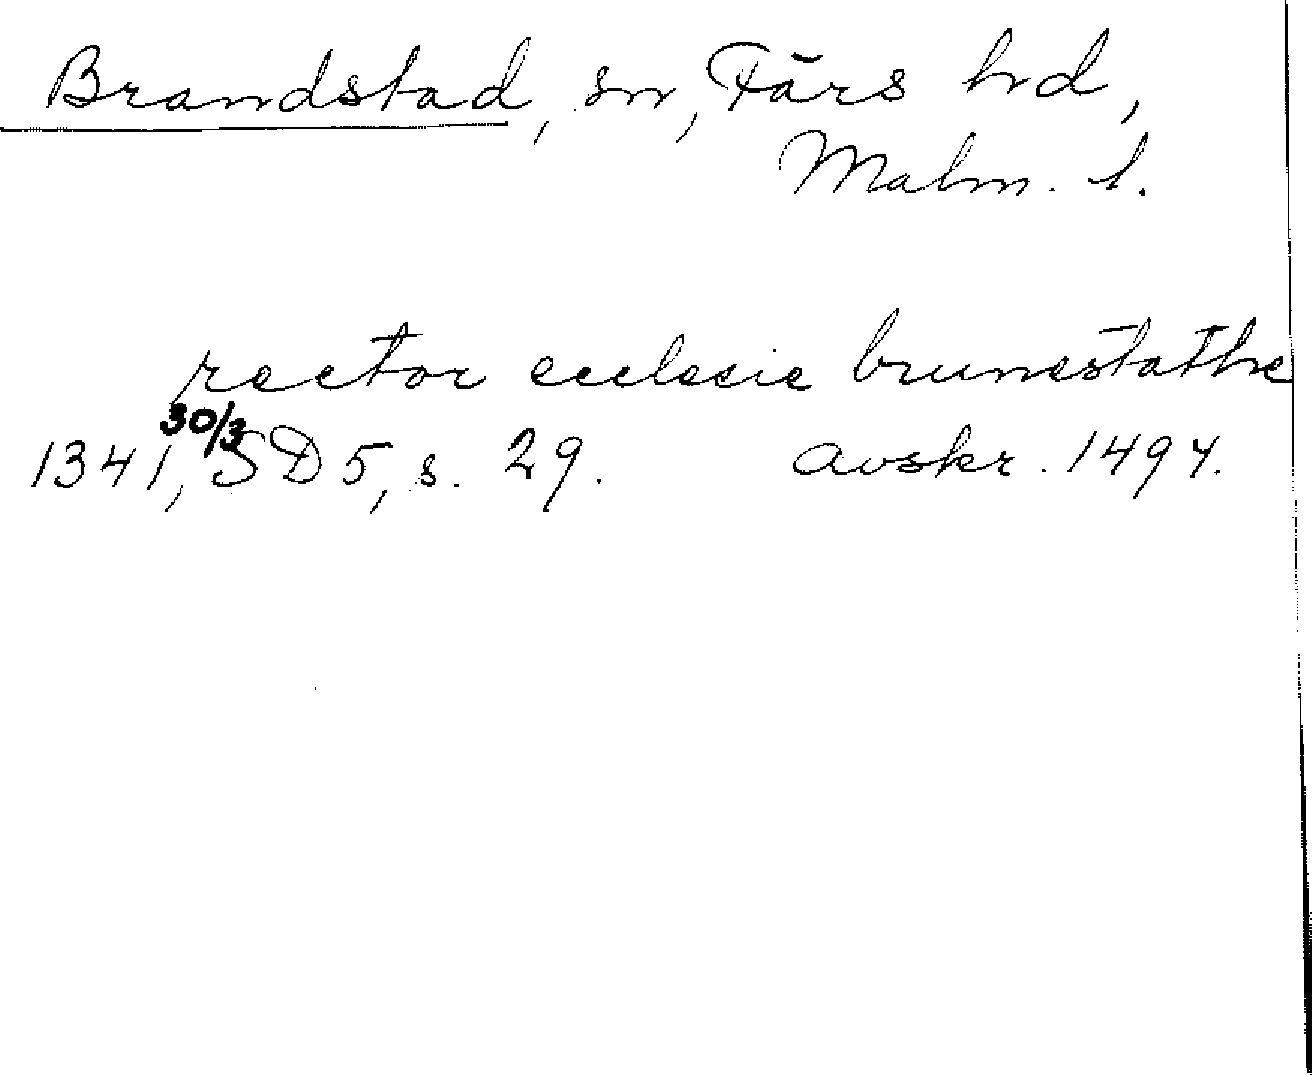 Brandstad, sn, Färs hd,
Malm. l.
rector ecclesie brunestathe
1341, 30/3 SD 5, s. 29. avskr. 1494.